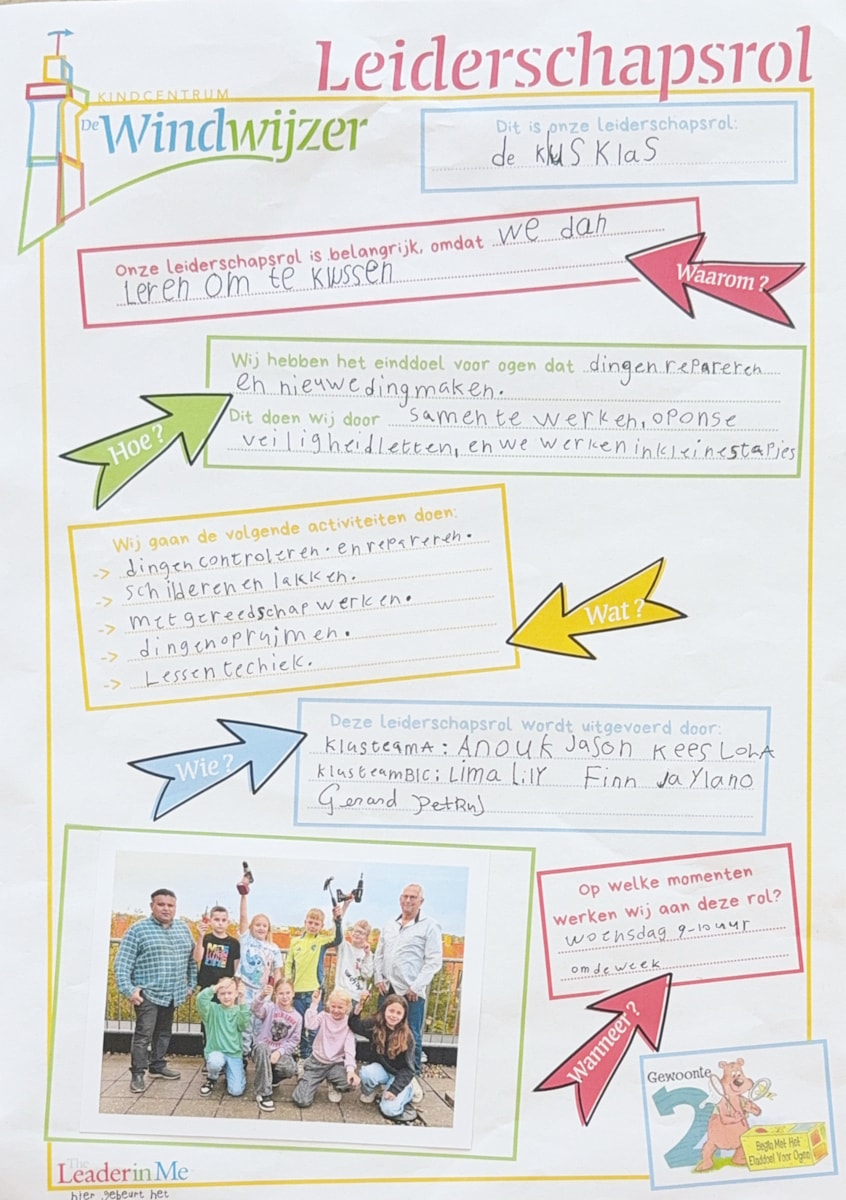 Leiderschapsrol
KINDCENTRUM
De Windwijzer
Dit is onze leiderschapsrol:
de klus Klas
Onze leiderschapsrol is belangrijk, omdat we dan
Leren om te klussen
Waarom?
Wij hebben het einddoel voor ogen dat dingen repareren
en nieuwe dingmaken.
Dit doen wij door samen te werken, oponse
veiligheidletten, en we werken in kleine stapjes
Hoe?
Wij gaan de volgende activiteiten doen:
-> dingen controleren. en repareren.
-> schilderen en lakken.
-> met gereedschap werken.
-> dingen opruimen.
-> Lessen techiek.
Wat?
Deze leiderschapsrol wordt uitgevoerd door:
klusteam A: Anouk Jason Kees Lona
klusteam B/C: Lima Lily Finn Jaylano
Gerard Petrus
Wie?
Op welke momenten
werken wij aan deze rol?
woensdag 9-10 uur
om de week
Wanneer?
Gewoonte
2
Begin Met Het
Einddoel Voor Ogen
The
Leader in Me
hier gebeurt het